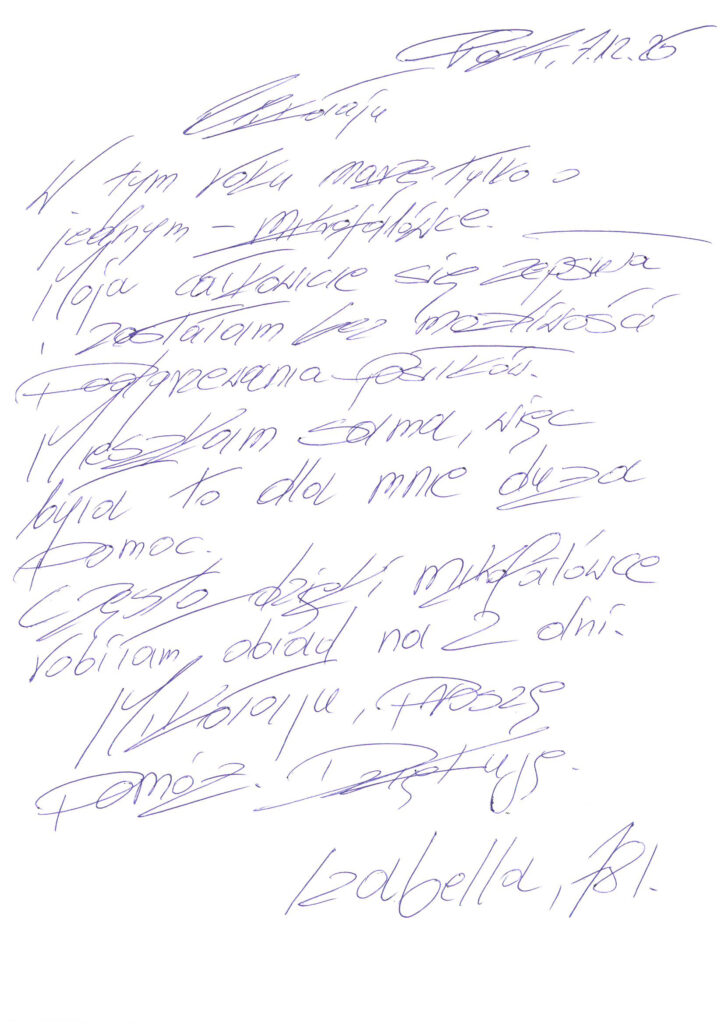 Płock, 7.12.25
Mikołaju
W tym roku marzę tylko o
jednym – mikrofalówce.
Moja całkowicie się zepsuła
i zostałam bez możliwości
Podgrzewania Posiłków.
Mieszkam sama, więc
była to dla mnie duża
Pomoc.
Często dzięki mikrofalówce
robiłam obiad na 2 dni.
Mikołaju, Proszę
Pomóż. Dziękuję.
Izabella, 78 l.